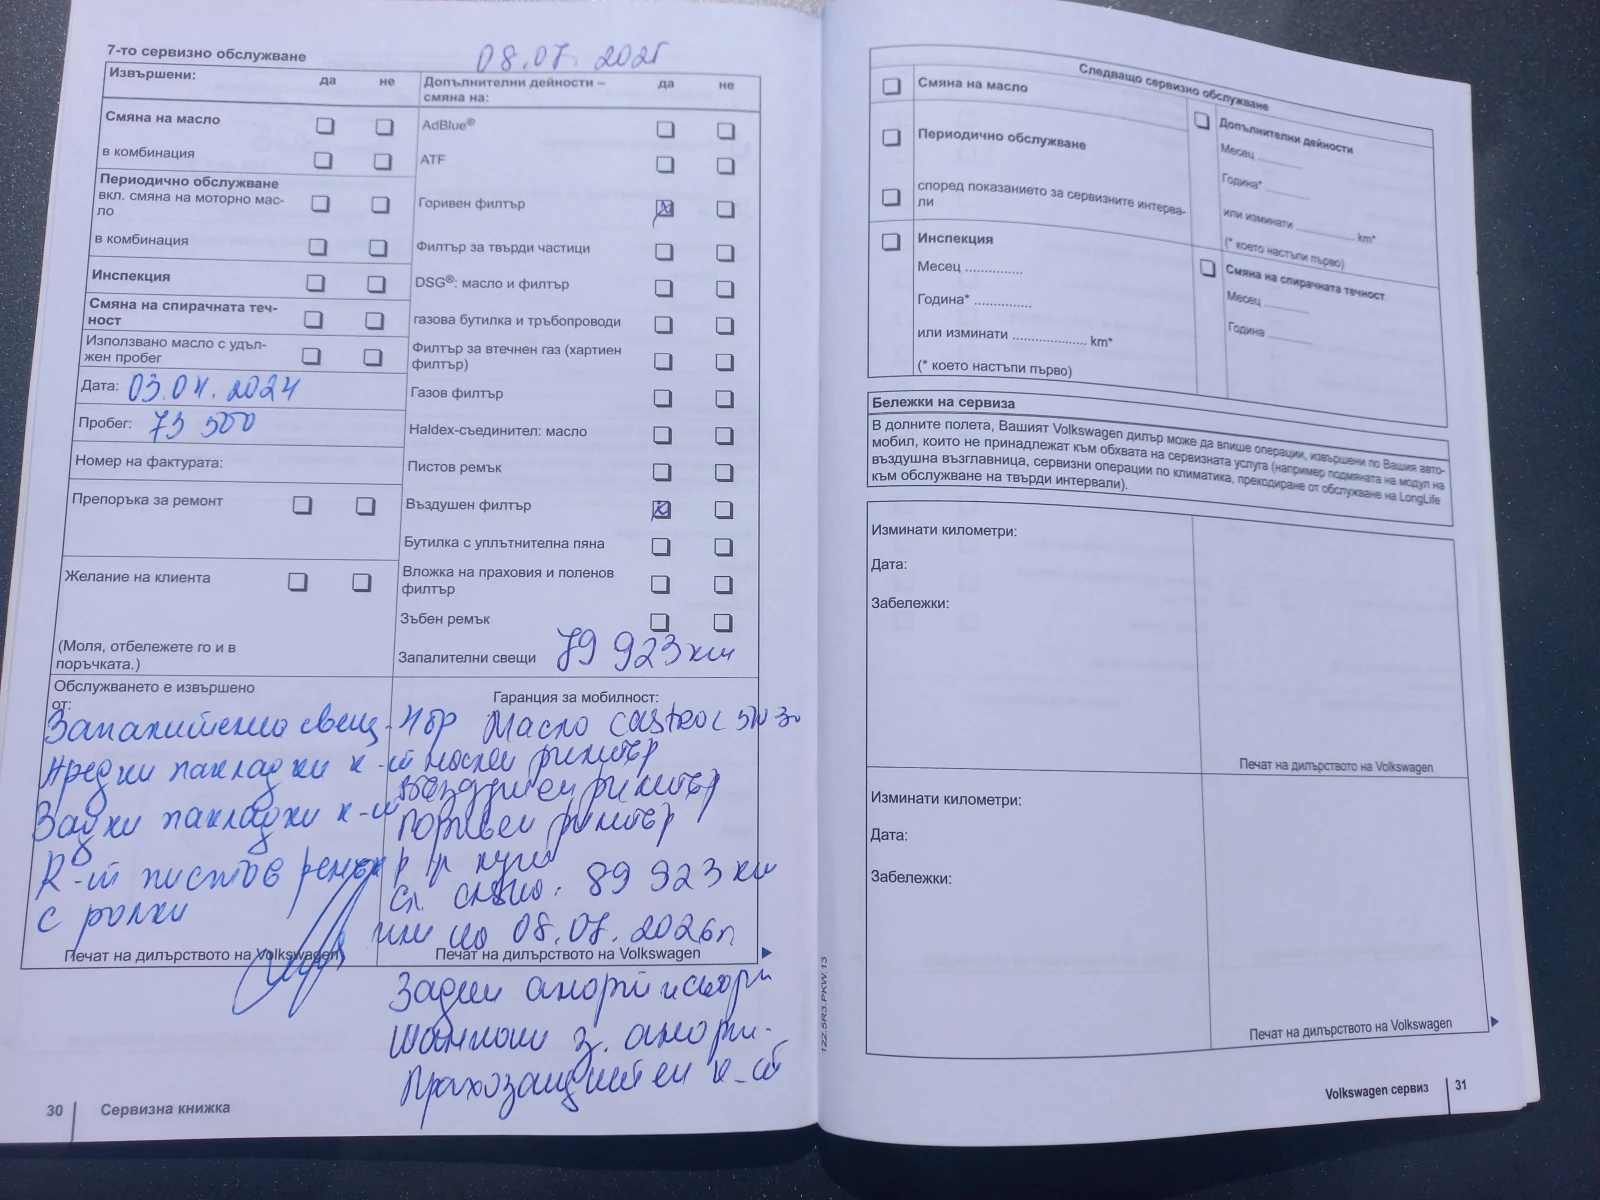 7-то сервизно обслужване
08.07. 2025
Извършени: да не
Смяна на масло
в комбинация
Периодично обслужване
вкл. смяна на моторно мас-
ло
в комбинация
Инспекция
Смяна на спирачната теч-
ност
Използвано масло с удъл-
жен пробег
Дата: 03.04.2024
Пробег: 73 500
Номер на фактурата:
Препоръка за ремонт
Желание на клиента
(Моля, отбележете го и в
поръчката.)
Допълнителни дейности –
смяна на: да не
AdBlue®
ATF
Горивен филтър
Филтър за твърди частици
DSG®: масло и филтър
газова бутилка и тръбопроводи
Филтър за втечнен газ (хартиен
филтър)
Газов филтър
Haldex-съединител: масло
Пистов ремък
Въздушен филтър
Бутилка с уплътнителна пяна
Вложка на праховия и поленов
филтър
Зъбен ремък
Запалителни свещи 79 923 км
Обслужването е извършено
от:
Запалителни свещ - 4бр
Предни накладки к-т
Задни накладки к-т
К-т пистов ремък
с ролки
Печат на дилърството на Volkswagen
Гаранция за мобилност:
Масло Castrol 5W30
маслен филтър
въздушен филтър
горивен филтър
ф-р купе
Сл. смяна: 89 923 км
или на 08.07.2026г
Печат на дилърството на Volkswagen
Задни амортисьори
Шампони з. аморт.
Прахозащитен к-т
30
Сервизна книжка
122.5R3.PKW.13
Следващо сервизно обслужване
Смяна на масло
Периодично обслужване
според показанието за сервизните интерва-
ли
Инспекция
Месец ..............
Година* ..............
или изминати .................... km*
(* което настъпи първо)
Допълнителни дейности
Месец ..........
Година* ..........
или изминати .............. km*
(* което настъпи първо)
Смяна на спирачната течност
Месец ..........
Година ..........
Бележки на сервиза
В долните полета, Вашият Volkswagen дилър може да впише операции, извършени по Вашия авто-
мобил, които не принадлежат към обхвата на сервизната услуга (например подмяната на модул на
въздушна възглавница, сервизни операции по климатика, прекодиране от обслужване на LongLife
към обслужване на твърди интервали).
Изминати километри:
Дата:
Забележки:
Печат на дилърството на Volkswagen
Изминати километри:
Дата:
Забележки:
Печат на дилърството на Volkswagen
Volkswagen сервиз
31